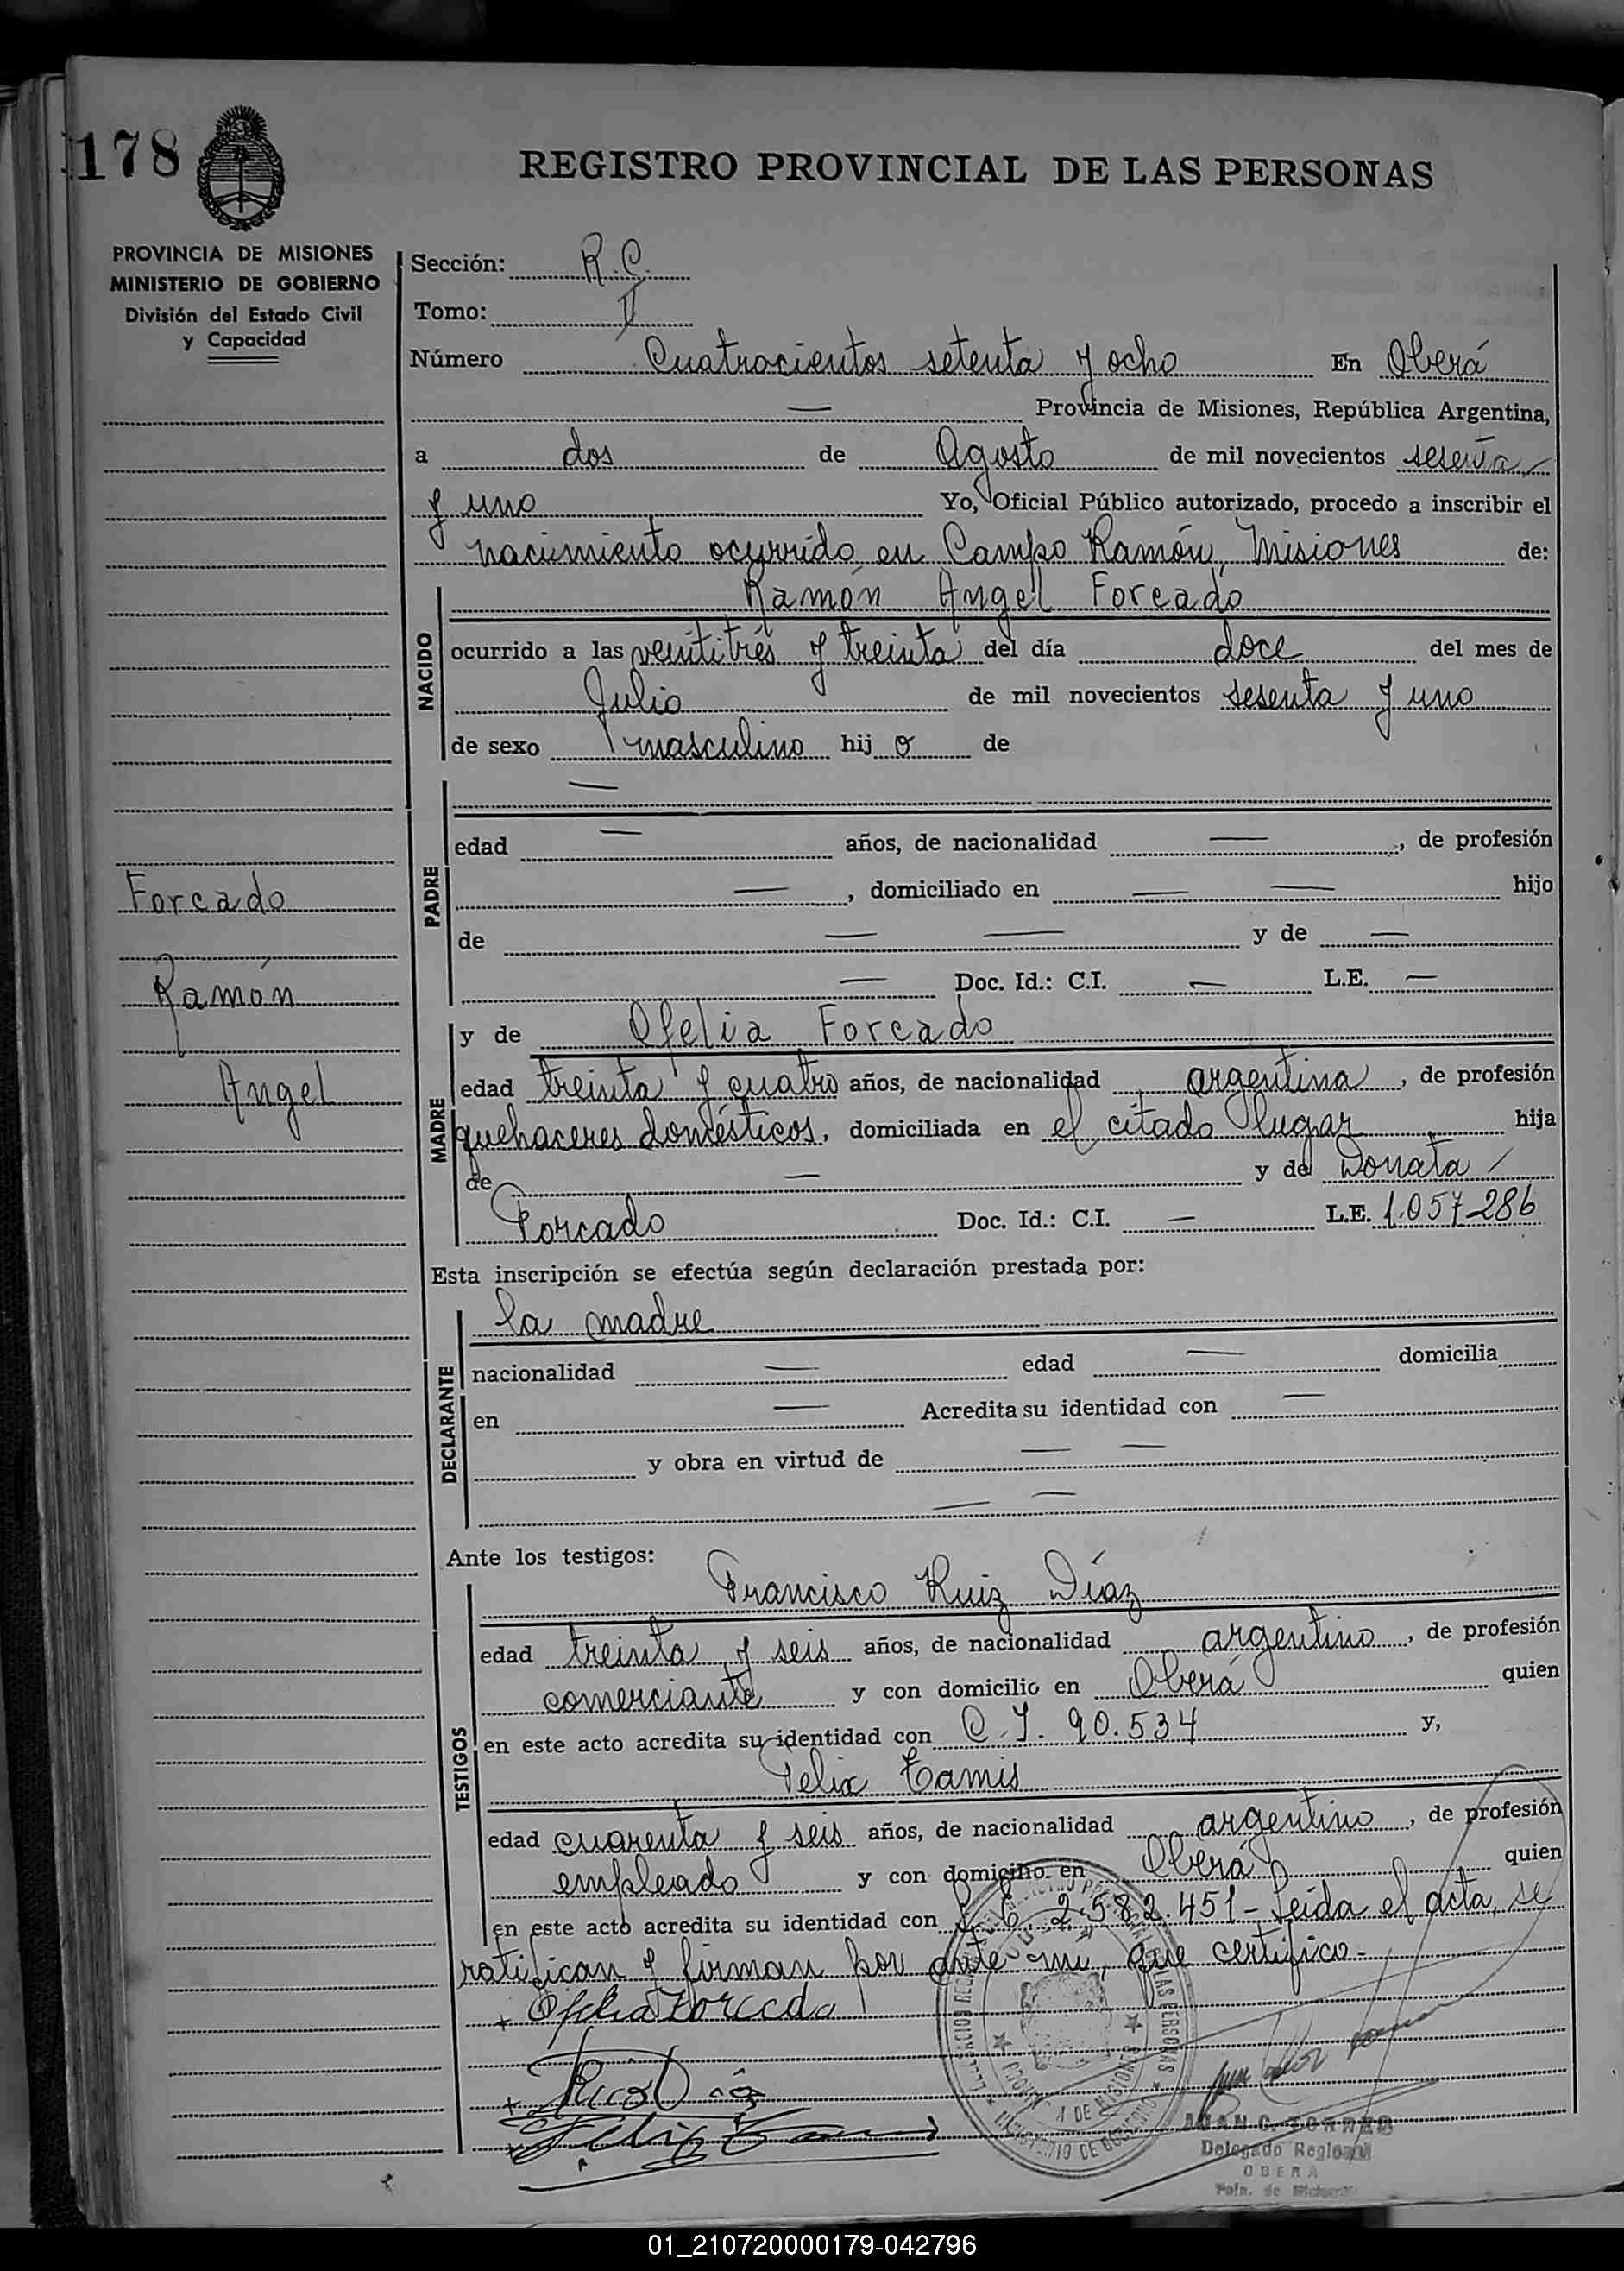 178
REGISTRO PROVINCIAL DE LAS PERSONAS
PROVINCIA DE MISIONES
MINISTERIO DE GOBIERNO
División del Estado Civil
y Capacidad
Sección: R.C.
Tomo: II
Número Cuatrocientos setenta y ocho En Oberá
— Provincia de Misiones, República Argentina,
a dos de Agosto de mil novecientos sesenta
y uno Yo, Oficial Público autorizado, procedo a inscribir el
nacimiento ocurrido en Campo Ramón, Misiones de:
NACIDO
Ramón Angel Forcado
ocurrido a las veintitrés y treinta del día doce del mes de
Julio de mil novecientos sesenta y uno
de sexo masculino hijo de
PADRE
—
edad — años, de nacionalidad —, de profesión
—, domiciliado en — — hijo
de — — y de —
— Doc. Id.: C.I. — L.E. —
Forcado
Ramón
Angel
MADRE
y de Ofelia Forcado
edad treinta y cuatro años, de nacionalidad argentina, de profesión
quehaceres domésticos, domiciliada en el citado lugar hija
de — y de Donata
Forcado Doc. Id.: C.I. — L.E. 1.057.286
Esta inscripción se efectúa según declaración prestada por:
DECLARANTE
la madre
nacionalidad — edad — domicilia
en — Acredita su identidad con —
y obra en virtud de — —
— —
Ante los testigos:
TESTIGOS
Francisco Ruiz Díaz
edad treinta y seis años, de nacionalidad argentino, de profesión
comerciante y con domicilio en Oberá quien
en este acto acredita su identidad con C.I. 90.534 y,
Felix Tamis
edad cuarenta y seis años, de nacionalidad argentino, de profesión
empleado y con domicilio en Oberá quien
en este acto acredita su identidad con L.E. 2.582.451 - Leída el acta, se
ratifican y firman por ante mi, que certifico -
+ Ofelia Forcado
JUAN C. TORRES
Delegado Regional
OBERA
01_210720000179-042796